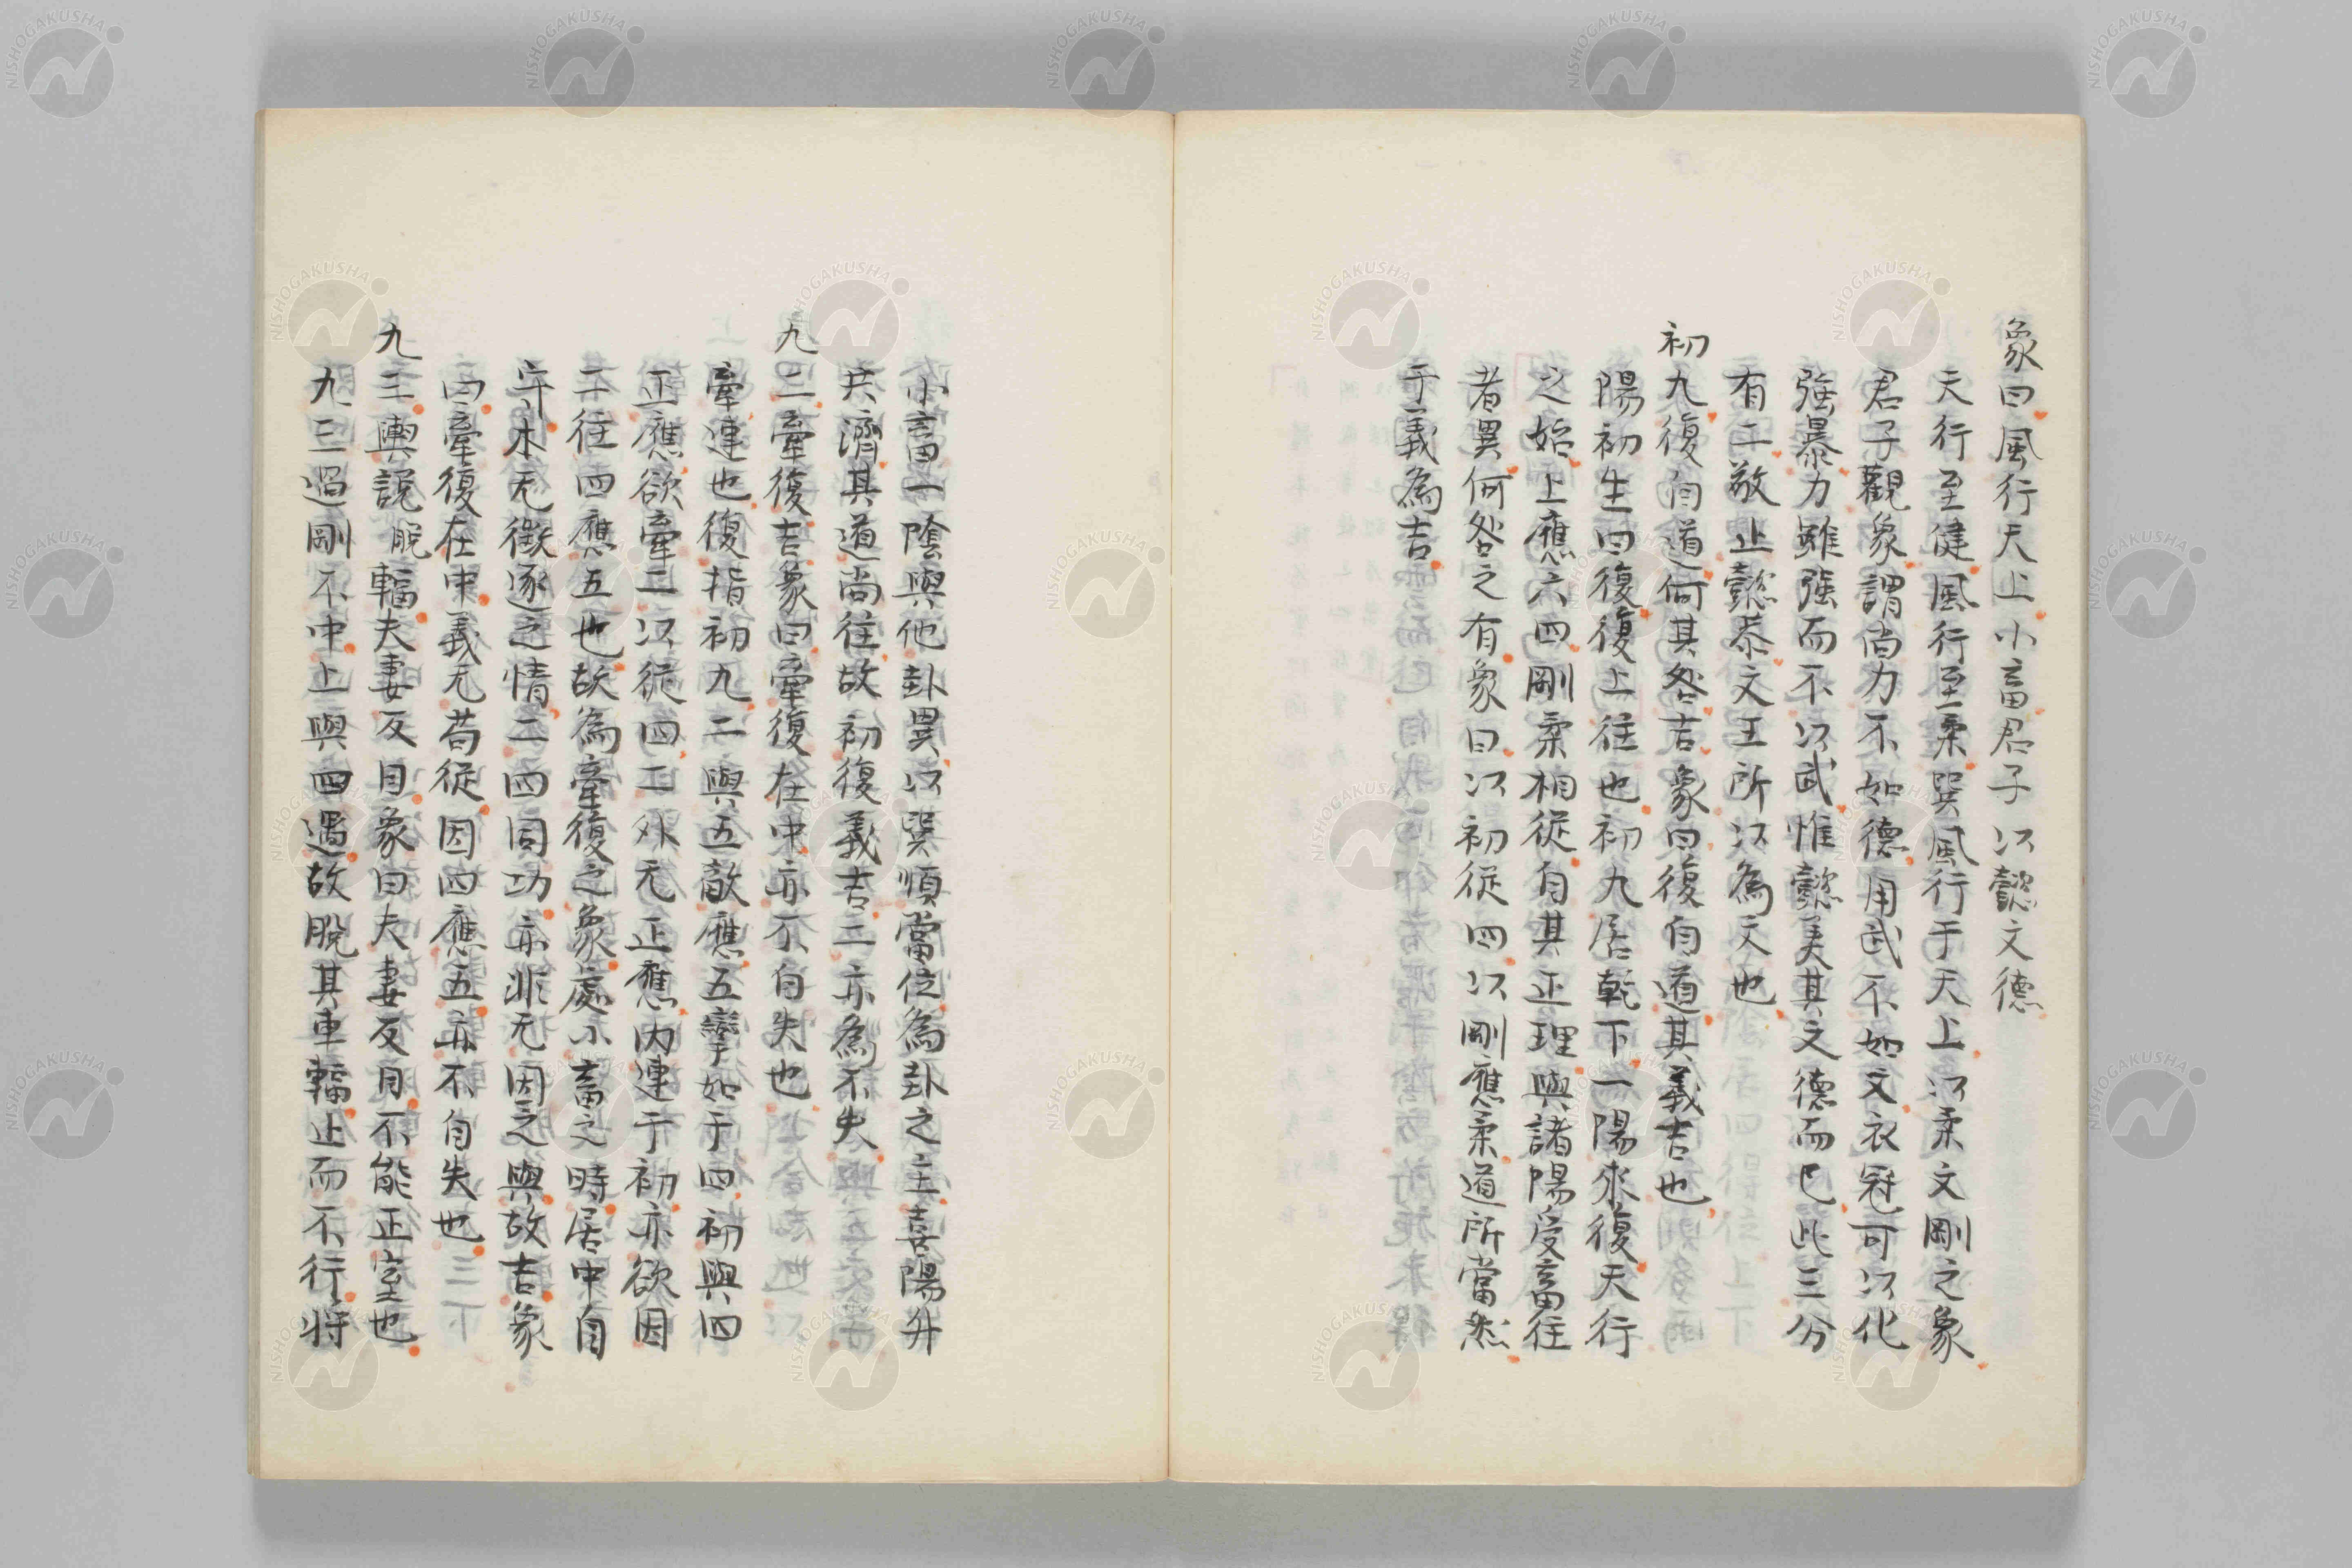 象曰風行天上小畜君子以懿文德
天行至健風行至柔巽風行于天上以柔文剛之象
君子觀象謂尚力不如德用武不如文衣冠可以化
強暴力雖强而不以武惟懿美其文德而已此三分
有二敬止懿恭文王所以為文也
初九復自道何其咎吉象曰復自道其義吉也
陽初生曰復復上往也初九居乾下一陽來復天行
之始上應六四剛柔相從自其正理與諸陽受畜往
者異何咎之有象曰以初從四以剛應柔道所當然
于義為吉
小畜一陰與他卦異以巽順當位為卦之主喜陽升
共濟其道尚往故初復義吉二亦為不失
九二牽復吉象曰牽復在中亦不自失也
牽連也復指初九二與五敵應五攣如于四初與四
正應欲牽二以從四二外无正應內連于初亦欲因
二往四應五也故為牽復之象處小畜之時居中自
守本无徵逐之情二四同功亦非无因之與故吉象
曰牽復在中義无苟從因四應五亦不自失也
九三輿說脫輻夫妻反目象曰夫妻反目不能正室也
九三過剛不中上與四遇故脫其車輻止而不行將
NISHOGAKUSHA